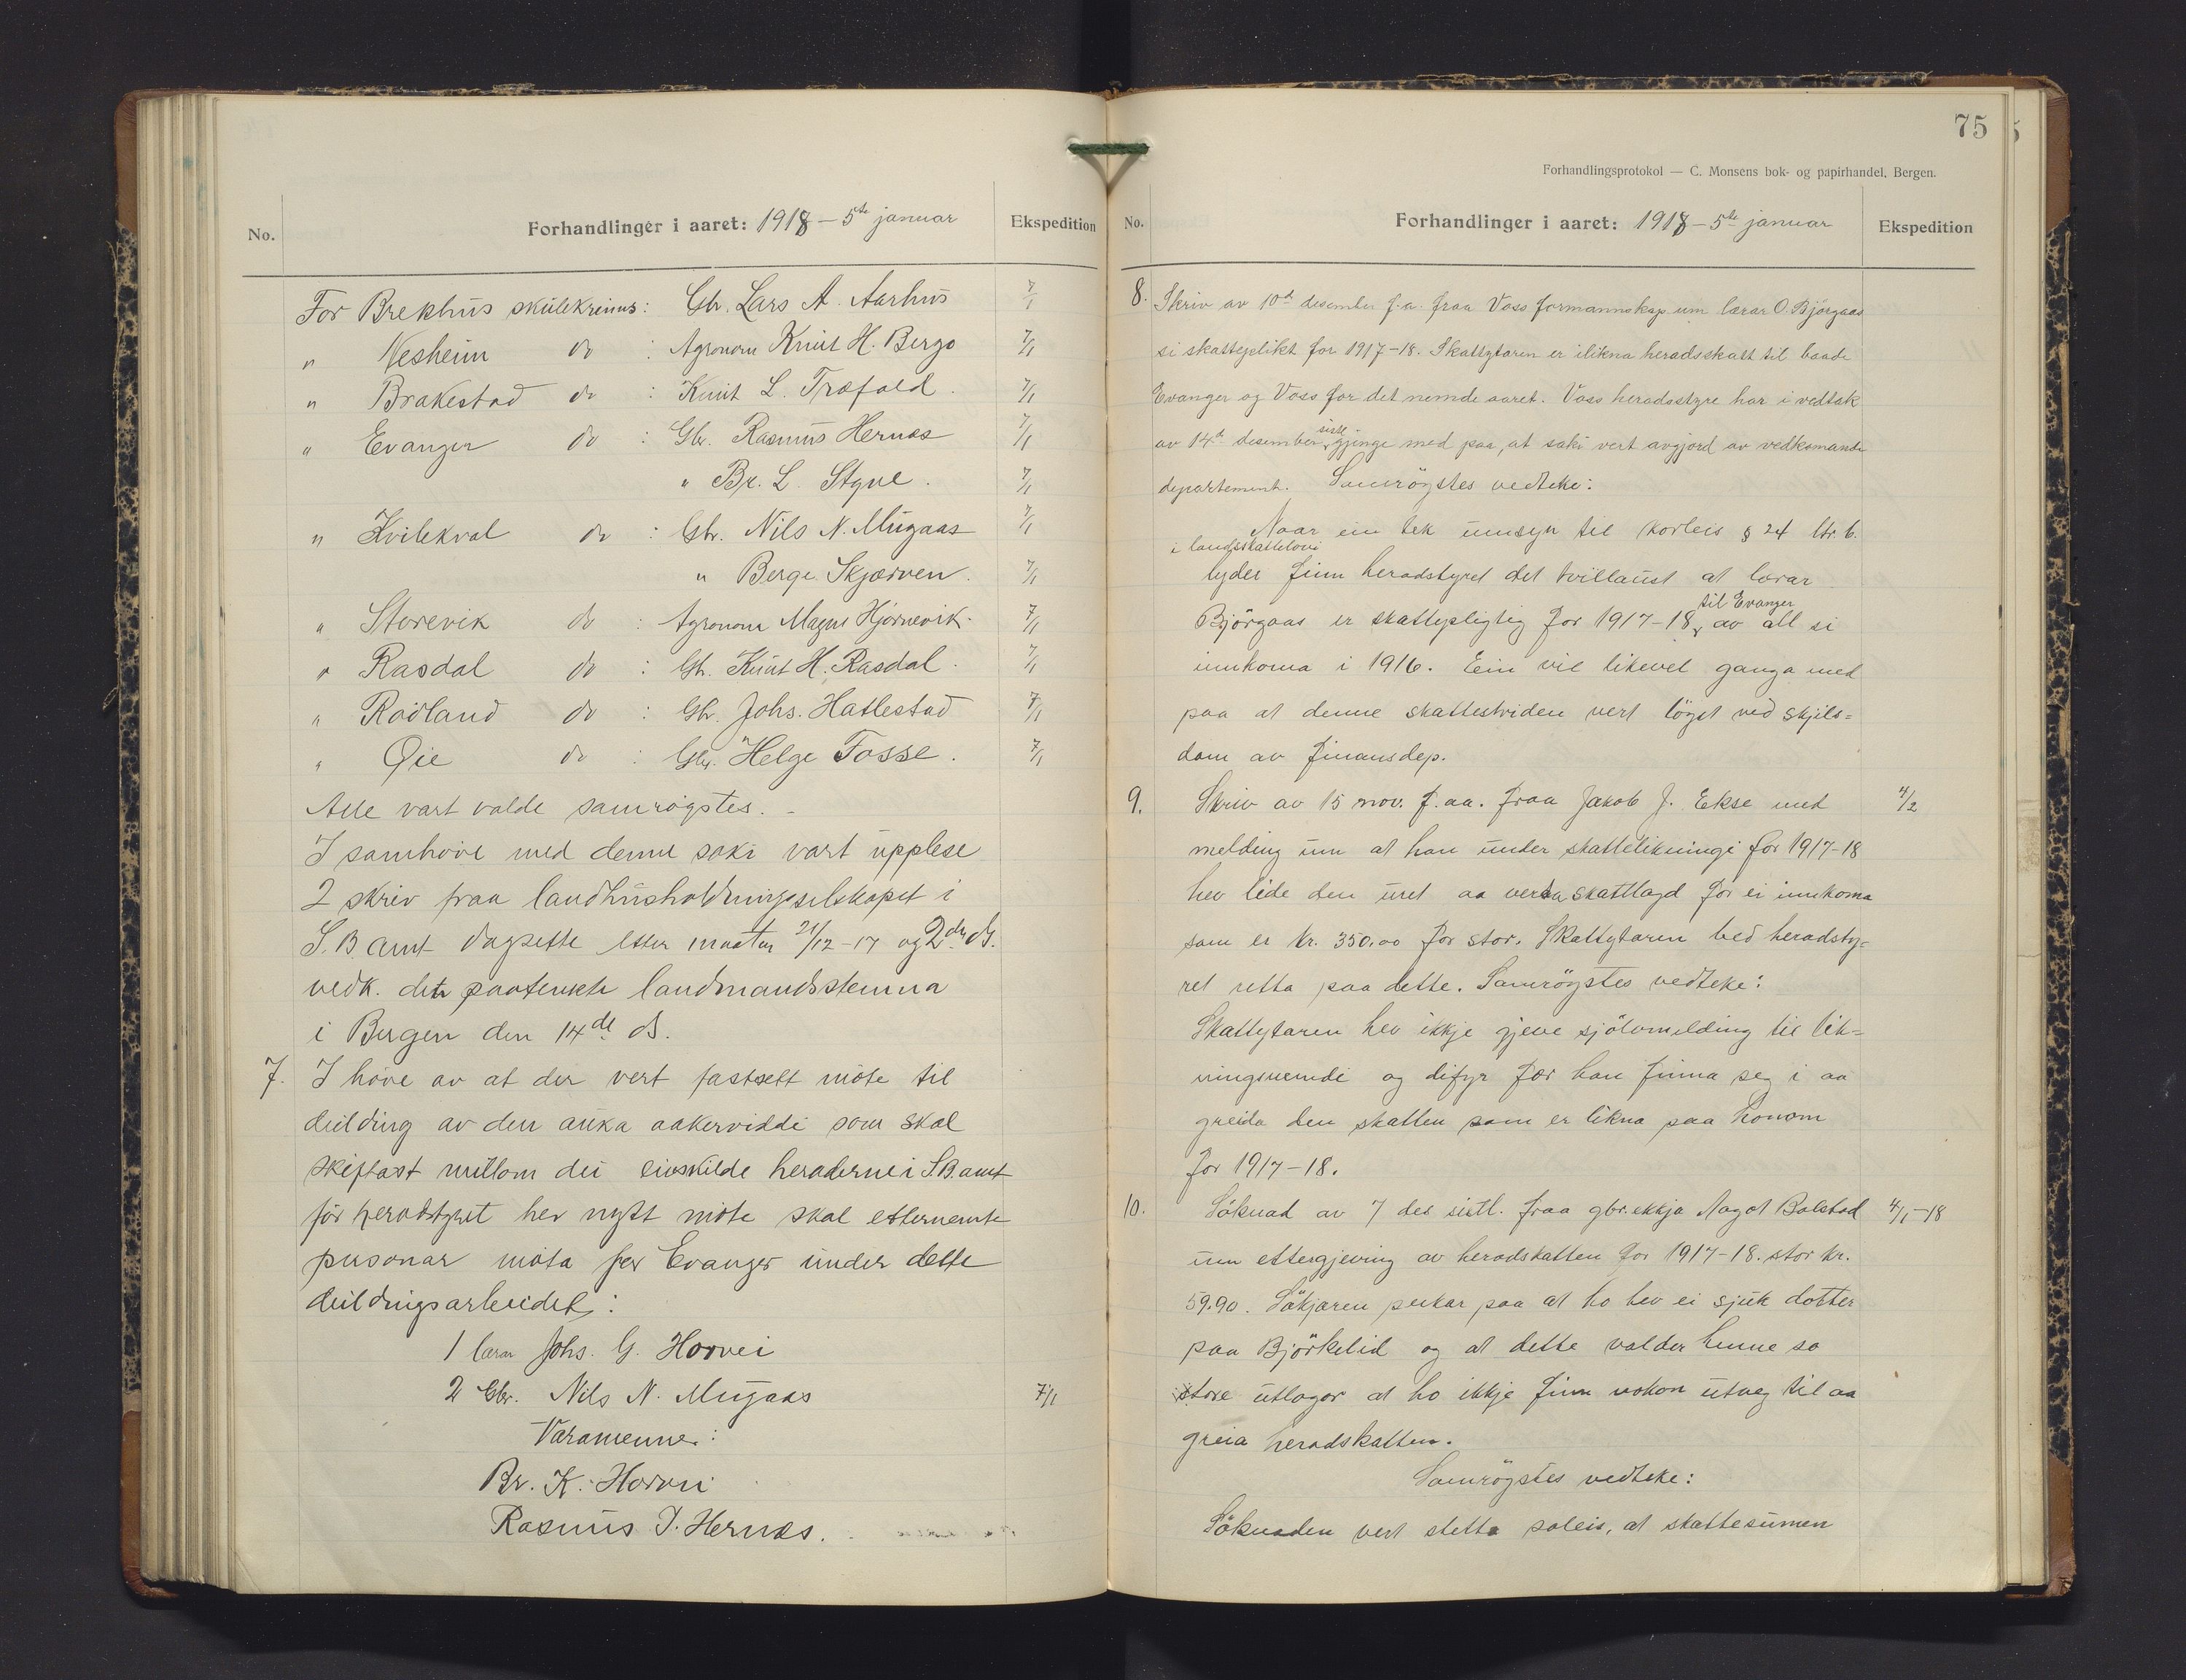 No.
Forhandlinger i aaret: 1918 – 5te januar
Ekspedition
For Brekhus skulekrins: Gbr. Lars A. Aarhus 7/1
" Nesheim do : Agronom Knut H. Bergo 7/1
" Brakestad do : Knut L. Træfald. 7/1
" Evanger do : Gbr. Rasmus Hernes 7/1
" Br. L. Styve. 7/1
" Kvilekval do : Gbr. Nils N. Mugaas 7/1
" Berge Skjærven. 7/1
" Storevik do : Agronom Magne Hjørnevik. 7/1
" Rasdal do : Gb. Knut H. Rasdal. 7/1
" Rødland do : Gb. Johs. Hatlestad 7/1
" Øie do : Gbr. Helge Fosse. 7/1
Alle vart valde samrøystes. –
I samhøve med denne saki vart upplese
2 skriv fraa landhusholdningsselskapet i
S. B. amt dagsette 21/12 - 17 og 2dre ds.
vedk. den paatenkte landmandsstemna
i Bergen den 14de ds.
7. I høve av at der vert fastsett møte til
deilding av den auka aakervidde som skal
skiftast millom dei einskilde heraderne i S.B. amt
før heradstyret hev nytt møte skal etternemnte
personar møta for Evanger under dette
deildingsarbeidet:
1 lærar Johs. G. Horvei
2 Gbr. Nils N. Mugaas 7/1
Varamenne:
Br. K. Horvei
Rasmus I. Hernes.
75
Forhandlingsprotokol — C. Monsens bok- og papirhandel, Bergen.
No.
Forhandlinger i aaret: 1918 – 5te januar
Ekspedition
8. Skriv av 10d desember f.a. fraa Voss formannskap um lærar O. Björgaas
si skatteplikt for 1917-18. Skattytaren er ilikna heradsskatt til baade
Evanger og Voss for det nemde aaret. Voss heradsstyre har i vedtak
av 14d desember siste gjenge med paa, at saki vert avgjord av vedkomande
departement. Samröystes vedteke:
Naar ein tek umsyn til korleis § 24 ltr. b.
i landsskattelovi
lyder finn heradstyret det tvillaust at lærar
Björgaas er skattepligtig for 1917-18 til Evanger av all si
innkoma i 1916. Ein vil likevel ganga med
paa at denne skattestriden vert löyst ved skjils=
dom av finansdep.
9. Skriv av 15 nov. f. aa. fraa Jakob J. Ekse med 4/2
melding um at han under skattelikningi for 1917-18
hev lide den uret aa verta skattlagd for ei innkoma
som er kr. 350.00 for stor. Skattytaren bed heradsty=
ret retta paa dette. Samröystes vedteke:
Skattytaren hev ikkje gjeve sjölvmelding til lik=
ningsnemdi og difyr fær han finna seg i aa
greida den skatten som er likna paa honom
for 1917-18.
10. Söknad av 7 des sistl. fraa gbr. ekkja Aagot Bolstad 4/1-18
um ettergjeving av heradskatten for 1917-18. stor kr.
59.90. Sökjaren peikar paa at ho hev ei sjuk dotter
paa Björkelid og at dette valder henne so
store utlogor at ho ikkje finn nokon utveg til aa
greia heradskatten.
Samröystes vedteke:
Söknaden vert stetta soleis, at skattesumen